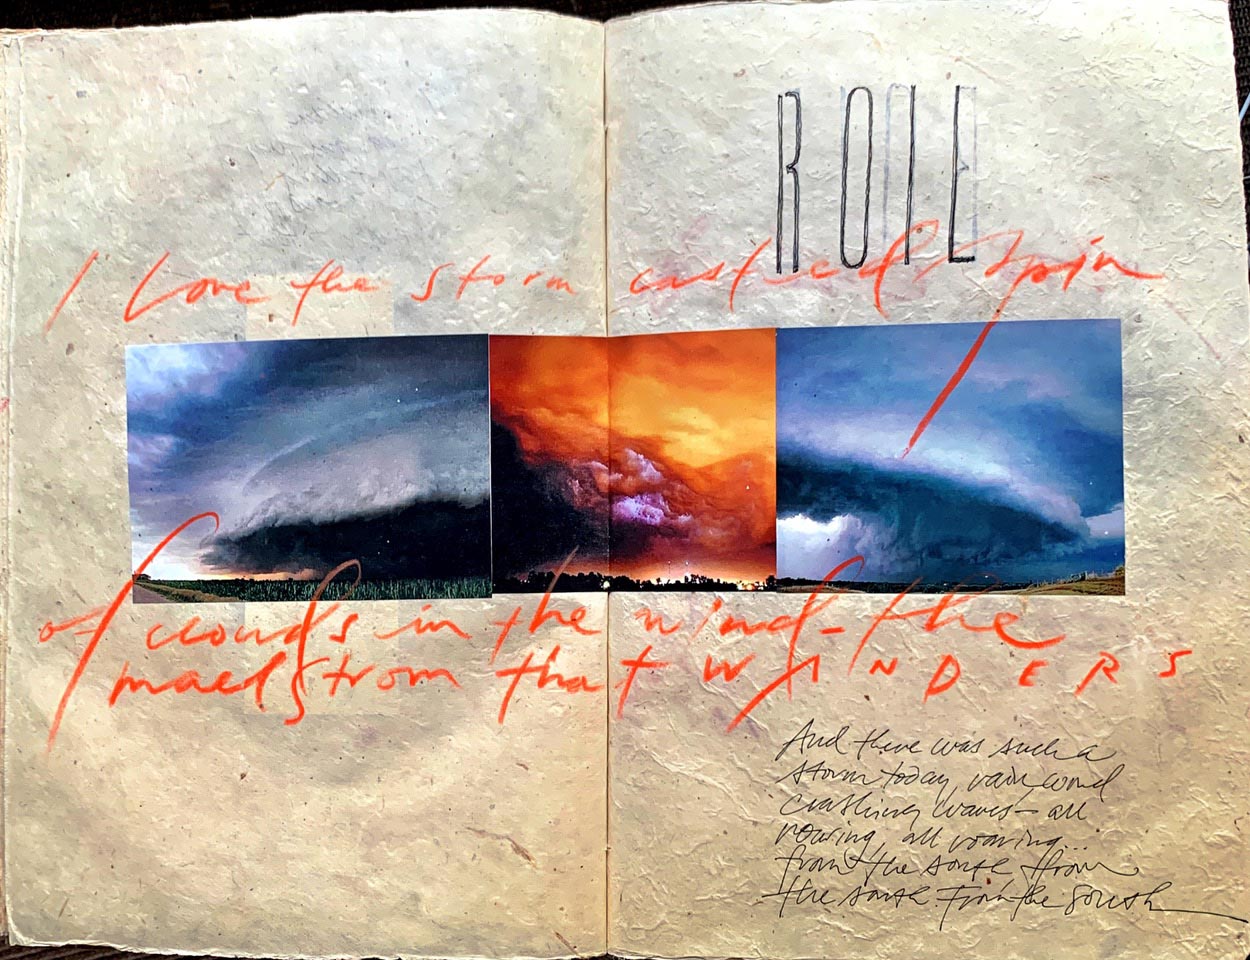 ROIL
I love the storm casted spin
of clouds in the wind–the
maelstrom that WANDERS
And there was such a
storm today, rain wind
crashing waves – all
all roaring...
from the south, from
the south from the south